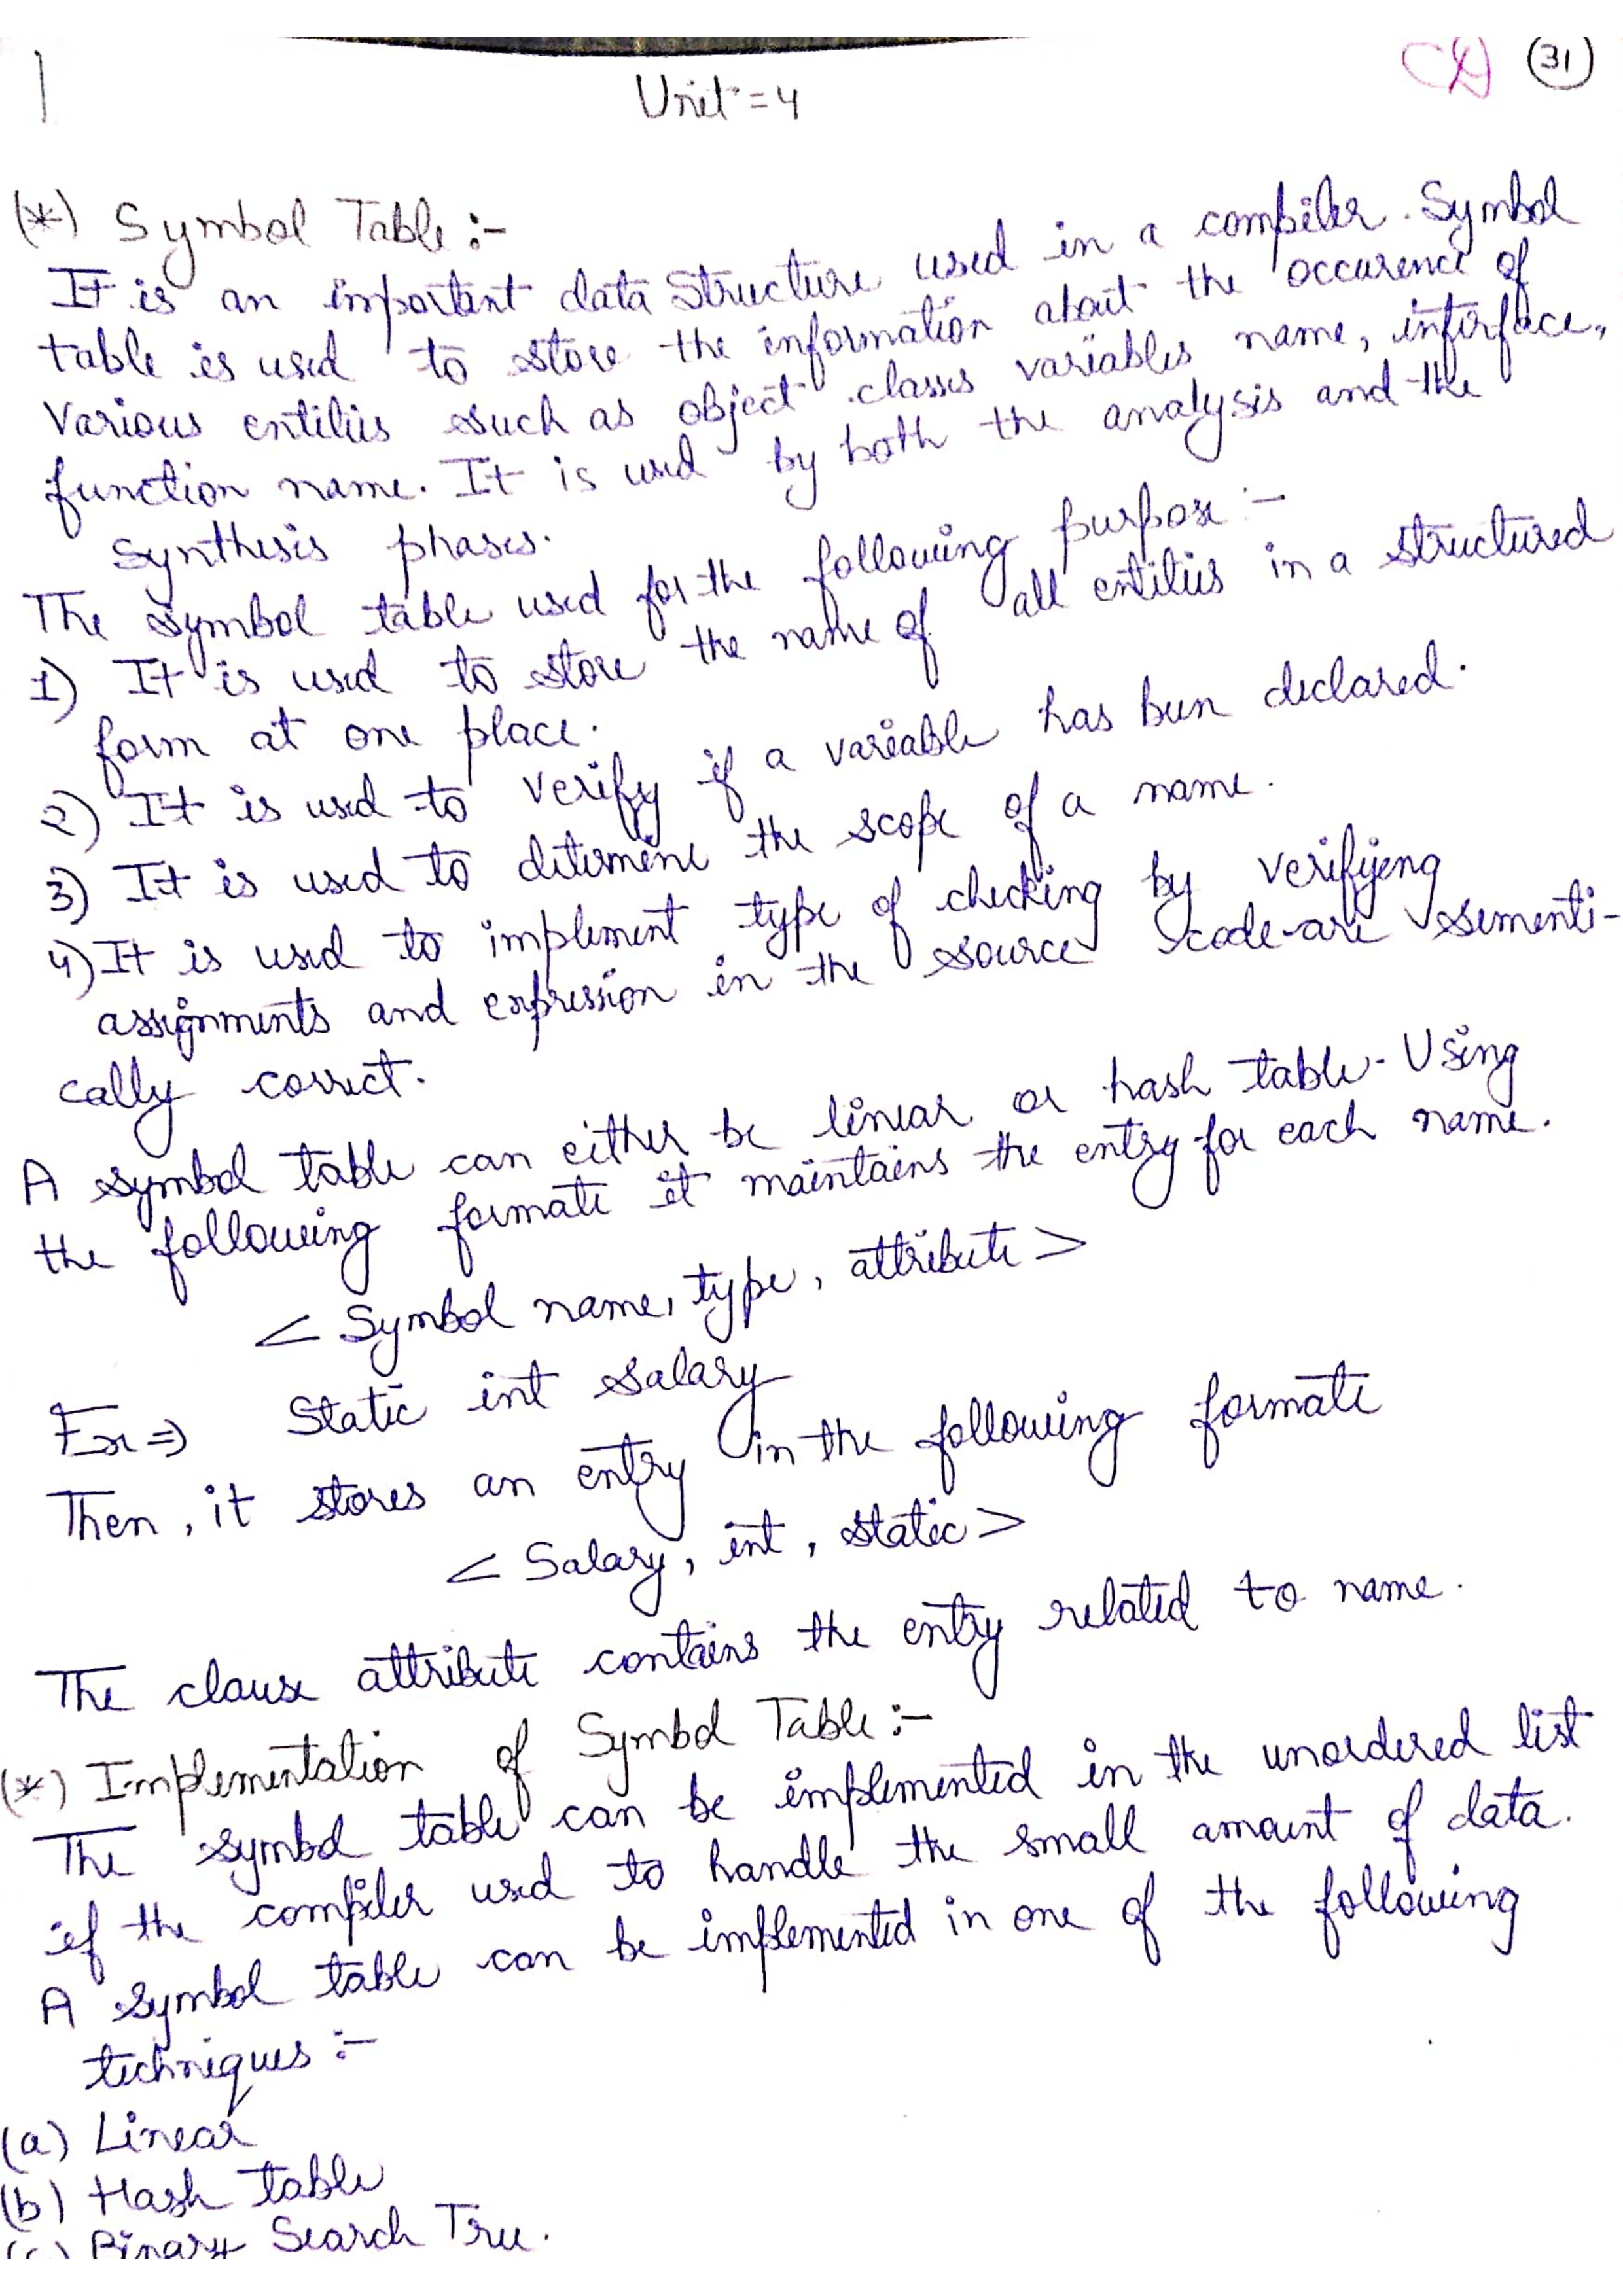 CD (31)
Unit = 4
(*) Symbol Table :-
It is an important data structure used in a compiler. Symbol
table is used to store the information about the occurence of
various entities such as object classes variables name, interface,
function name. It is used by both the analysis and the
synthesis phases.
The symbol table used for the following purpose :-
1) It is used to store the name of all entities in a structured
form at one place.
2) It is used to verify if a variable has been declared.
3) It is used to determine the scope of a name.
4) It is used to implement type of checking by verifying
assignments and expression in the source code are sementi-
cally correct.
A symbol table can either be linear or hash table. Using
the following formate it maintains the entry for each name.
< Symbol name, type, attribute >
Ex => Static int Salary
Then, it stores an entry in the following formate
< Salary, int, static >
The clause attribute contains the entry related to name.
(*) Implementation of Symbol Table :-
The symbol table can be implemented in the unordered list
if the compiler used to handle the small amount of data.
A symbol table can be implemented in one of the following
techniques :-
(a) Linear
(b) Hash table
(c) Binary Search Tree.